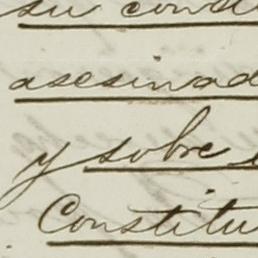 su const
asesinad
y sobre
Constitu